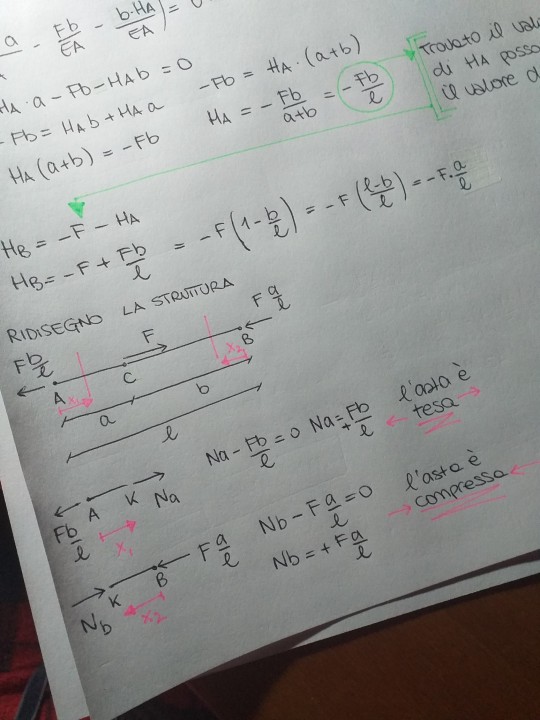 a/ - Fb/EA - b·HA/EA) = 0
HA·a - Fb - HAb = 0
-Fb = HAb + HAa
HA(a+b) = -Fb
-Fb = HA·(a+b)
HA = - Fb/a+b = - Fb/l
Trovato il valo
di HA posso
il valore d
HB = -F - HA
HB = -F + Fb/l = -F(1 - b/l) = -F(l-b/l) = -F·a/l
RIDISEGNO LA STRUTTURA
Fb/l F F a/l
A C B
x1 x2
a b
l
Na - Fb/l = 0 Na = + Fb/l
l'asta è
tesa
Fb/l A K Na
x1
Nb - F a/l = 0
Nb = + F a/l
l'asta è
compressa
Nb K B F a/l
x2